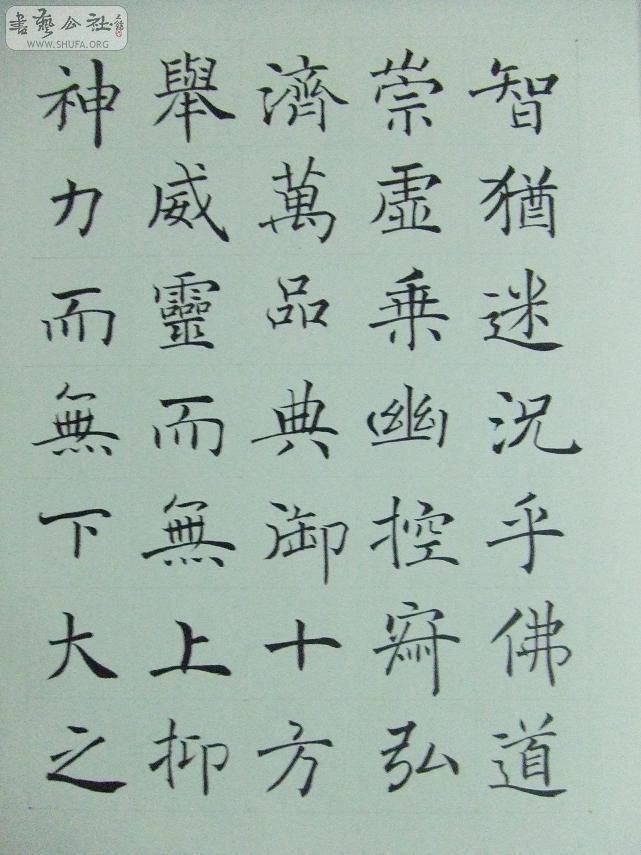 智猶迷況乎佛道
崇虛乗幽控寂弘
濟萬品典御十方
舉威靈而無上抑
神力而無下大之
書藝公社
WWW.SHUFA.ORG